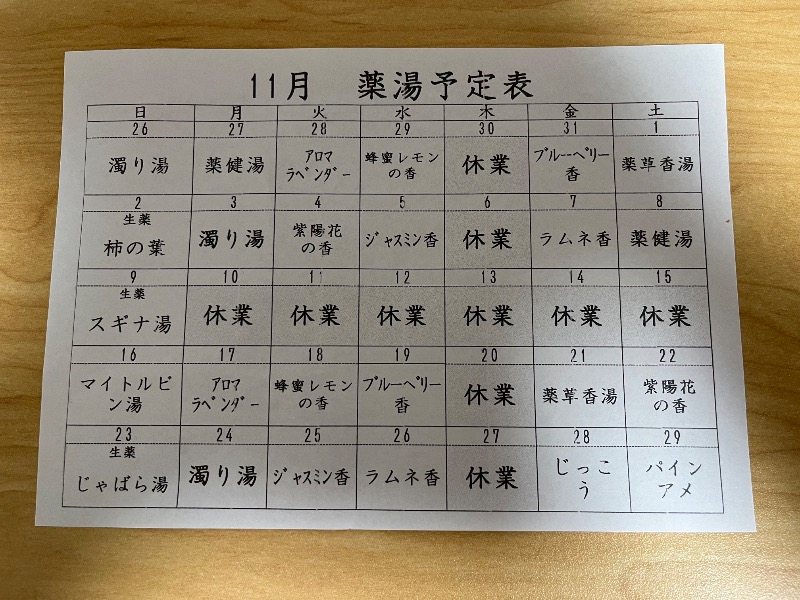 11月　薬湯予定表
日 月 火 水 木 金 土
26 27 28 29 30 31 1
濁り湯
薬健湯
ｱﾛﾏ
ﾗﾍﾞﾝﾀﾞｰ
蜂蜜レモン
の香
休業
ﾌﾞﾙｰﾍﾞﾘｰ
香
薬草香湯
2 3 4 5 6 7 8
生薬
柿の葉
濁り湯
紫陽花
の香
ｼﾞｬｽﾐﾝ香
休業
ラムネ香
薬健湯
9 10 11 12 13 14 15
生薬
スギナ湯
休業
休業
休業
休業
休業
休業
16 17 18 19 20 21 22
マイトルビ
ン湯
ｱﾛﾏ
ﾗﾍﾞﾝﾀﾞｰ
蜂蜜レモン
の香
ﾌﾞﾙｰﾍﾞﾘｰ
香
休業
薬草香湯
紫陽花
の香
23 24 25 26 27 28 29
生薬
じゃばら湯
濁り湯
ｼﾞｬｽﾐﾝ香
ラムネ香
休業
じっこ
う
パイン
アメ